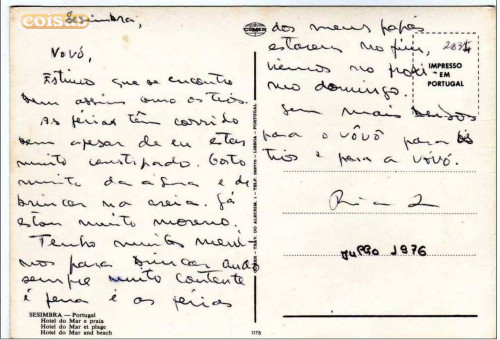 coisas
Sesimbra,
Vovó,
Estimo que se encontre
bem assim como os tios.
As férias têm corrido
bem apesar de eu estar
muito constipado. Gosto
muito da água e de
brincar na areia. Já
estou muito moreno.
Tenho muitos meni-
nos para brincar ando
sempre muito contente
é pena é as férias
SESIMBRA — Portugal
Hotel do Mar e praia
Hotel do Mar et plage
Hotel do Mar and beach
COMER
1176
dos meus papás
estarem no fim,
viemos no próxi
mo domingo.
Sem mais beijos
para o vôvô para os
tios e para a vovó.
Julho 1976
IMPRESSO
EM
PORTUGAL